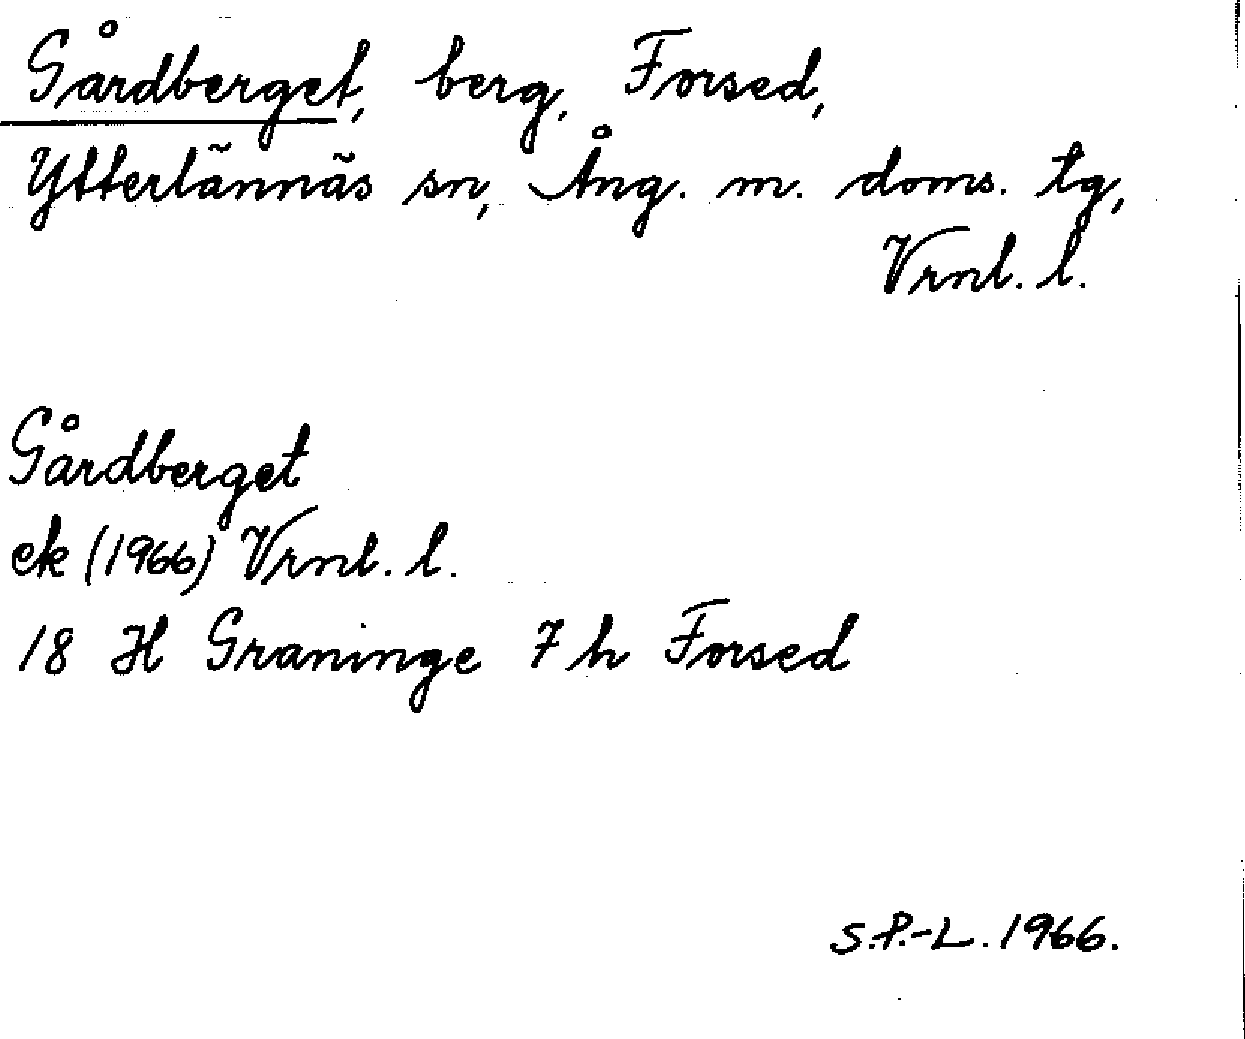 Gårdberget, berg, Forsed,
Ytterlännäs sn, Ång. m. doms. tg,
Vrnl. l.
Gårdberget
ek (1966) Vrnl. l.
18 H Graninge 7 h Forsed
S.P.-L. 1966.